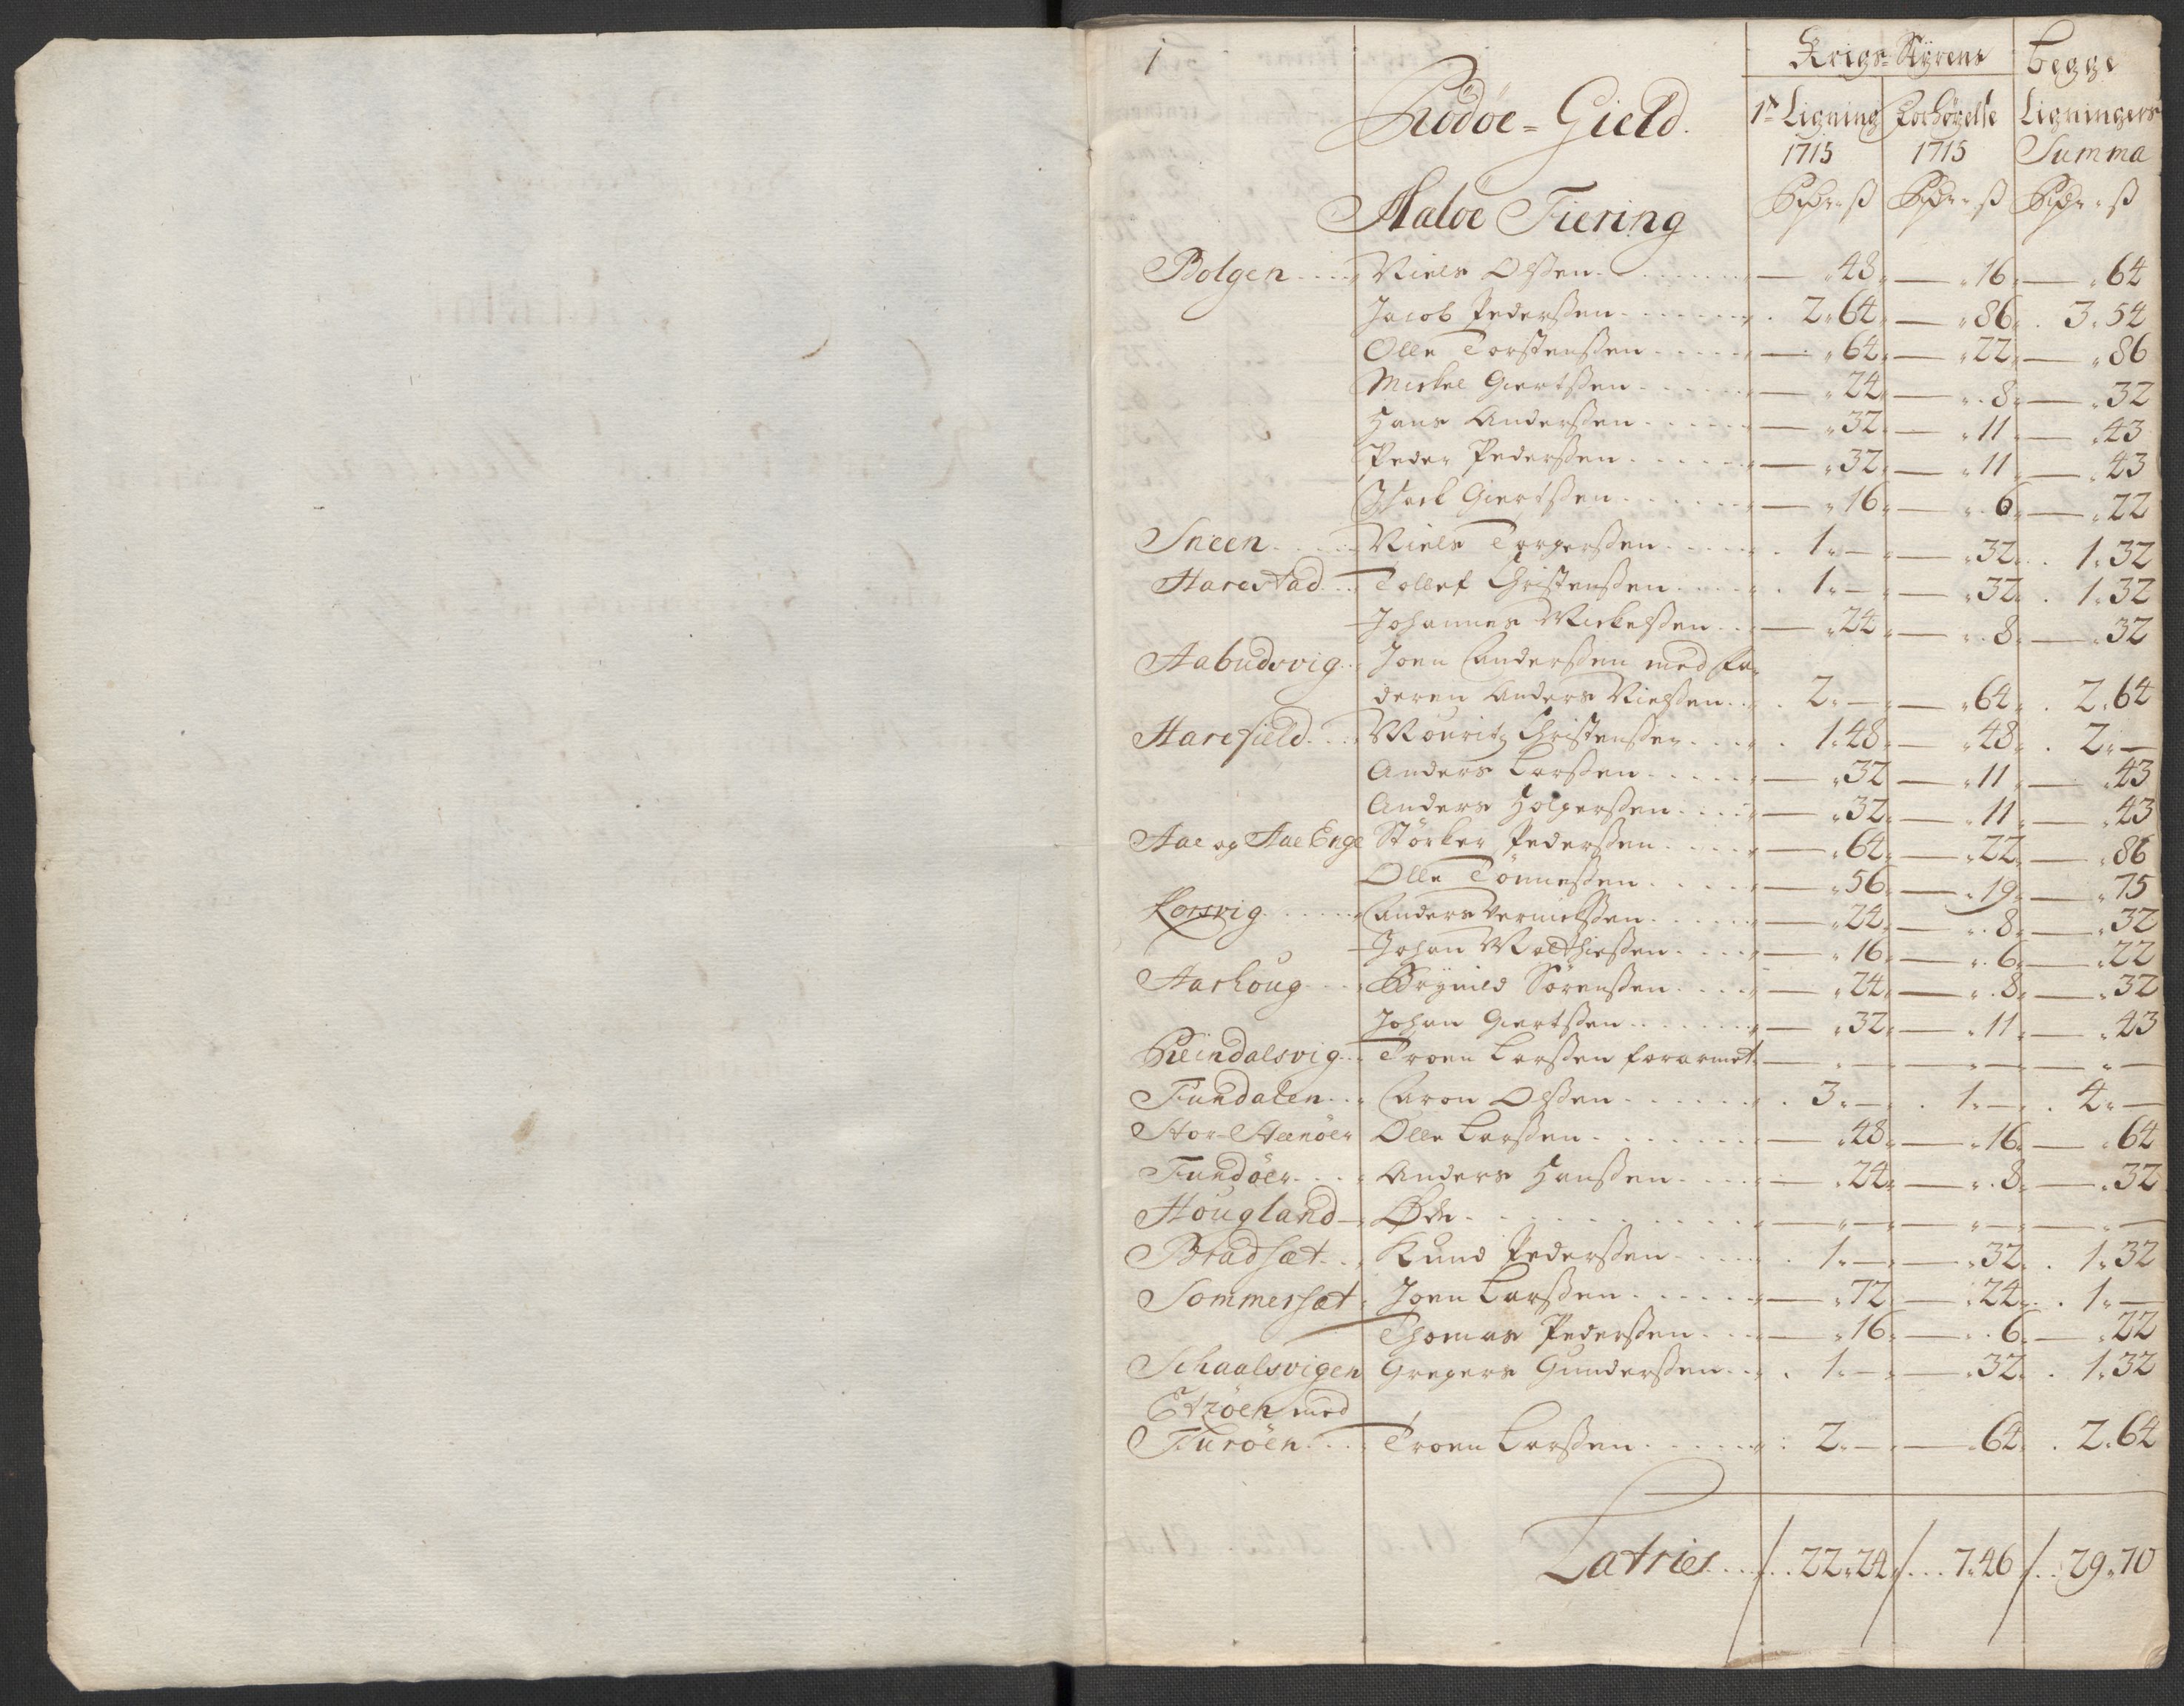 1
Rödöe-Gield.
Krigs-Styrens
begge
1te Ligning
Forhögelse
Ligningers
1715
1715
Summa
Aaloe Fiering
Bolgen Niels Olssen — 48 — 16 — 64
Jacob Pederssen 2. 64 — 86. 3. 54
Olle Torstenssen — 64 — 22 — 86
Mickel Giertssen — 24 — 8 — 32
Hans Anderssen — 32 — 11 — 43
Peder Pederssen — 32 — 11 — 43
Isack Giertssen — 16 — 6 — 22
Sneen Niels Torgerssen 1. — — 32. 1. 32
Harestad Tollef Christenssen 1. — — 32. 1. 32
Johannes Mickelssen — 24 — 8 — 32
Aabudsvig Joen Anderssen med fa-
deren Anders Nielssen 2. — — 64. 2. 64
Harefield Mouritz Christenssen 1. 48 — 48. 2. —
Anders Larssen — 32 — 11 — 43
Anders Holgerssen — 32 — 11 — 43
Aae og Aae Enge Störker Pederssen — 64 — 22 — 86
Olle Tönnessen — 56 — 19 — 75
Korsvig Anders — 24 — 8 — 32
Johan Matthiessen — 16 — 6 — 22
Aarhoug Brynild Sörenssen — 24 — 8 — 32
Johan Giertssen — 32 — 11 — 43
Reindalsvig Troen Larssen forarmet — — — — — —
Fundalen Aron Olssen 3. — 1. — 4. —
Stor-Steenöer Olle Larssen — 48 — 16 — 64
Fundöer Anders Hanssen — 24 — 8 — 32
Hougland Öde — — — — — —
Bradsæt Knud Pederssen 1. — — 32. 1. 32
Sommersæt Joen Larssen — 72 — 24. 1. —
Thomas Pederssen — 16 — 6 — 22
Schaalsvigen Gregers Gunderssen 1. — — 32. 1. 32
Etzöen med
Furöen Troen Larssen 2. — — 64. 2. 64
Latries 22. 24 7. 46 29. 70